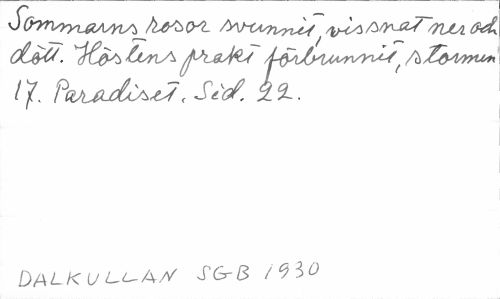 Sommarns rosor svunnit, vissnat ner och
dött. Höstens prakt förbrunnit, stormen
17. Paradiset. Sid. 22.
DALKULLAN SGB 1930